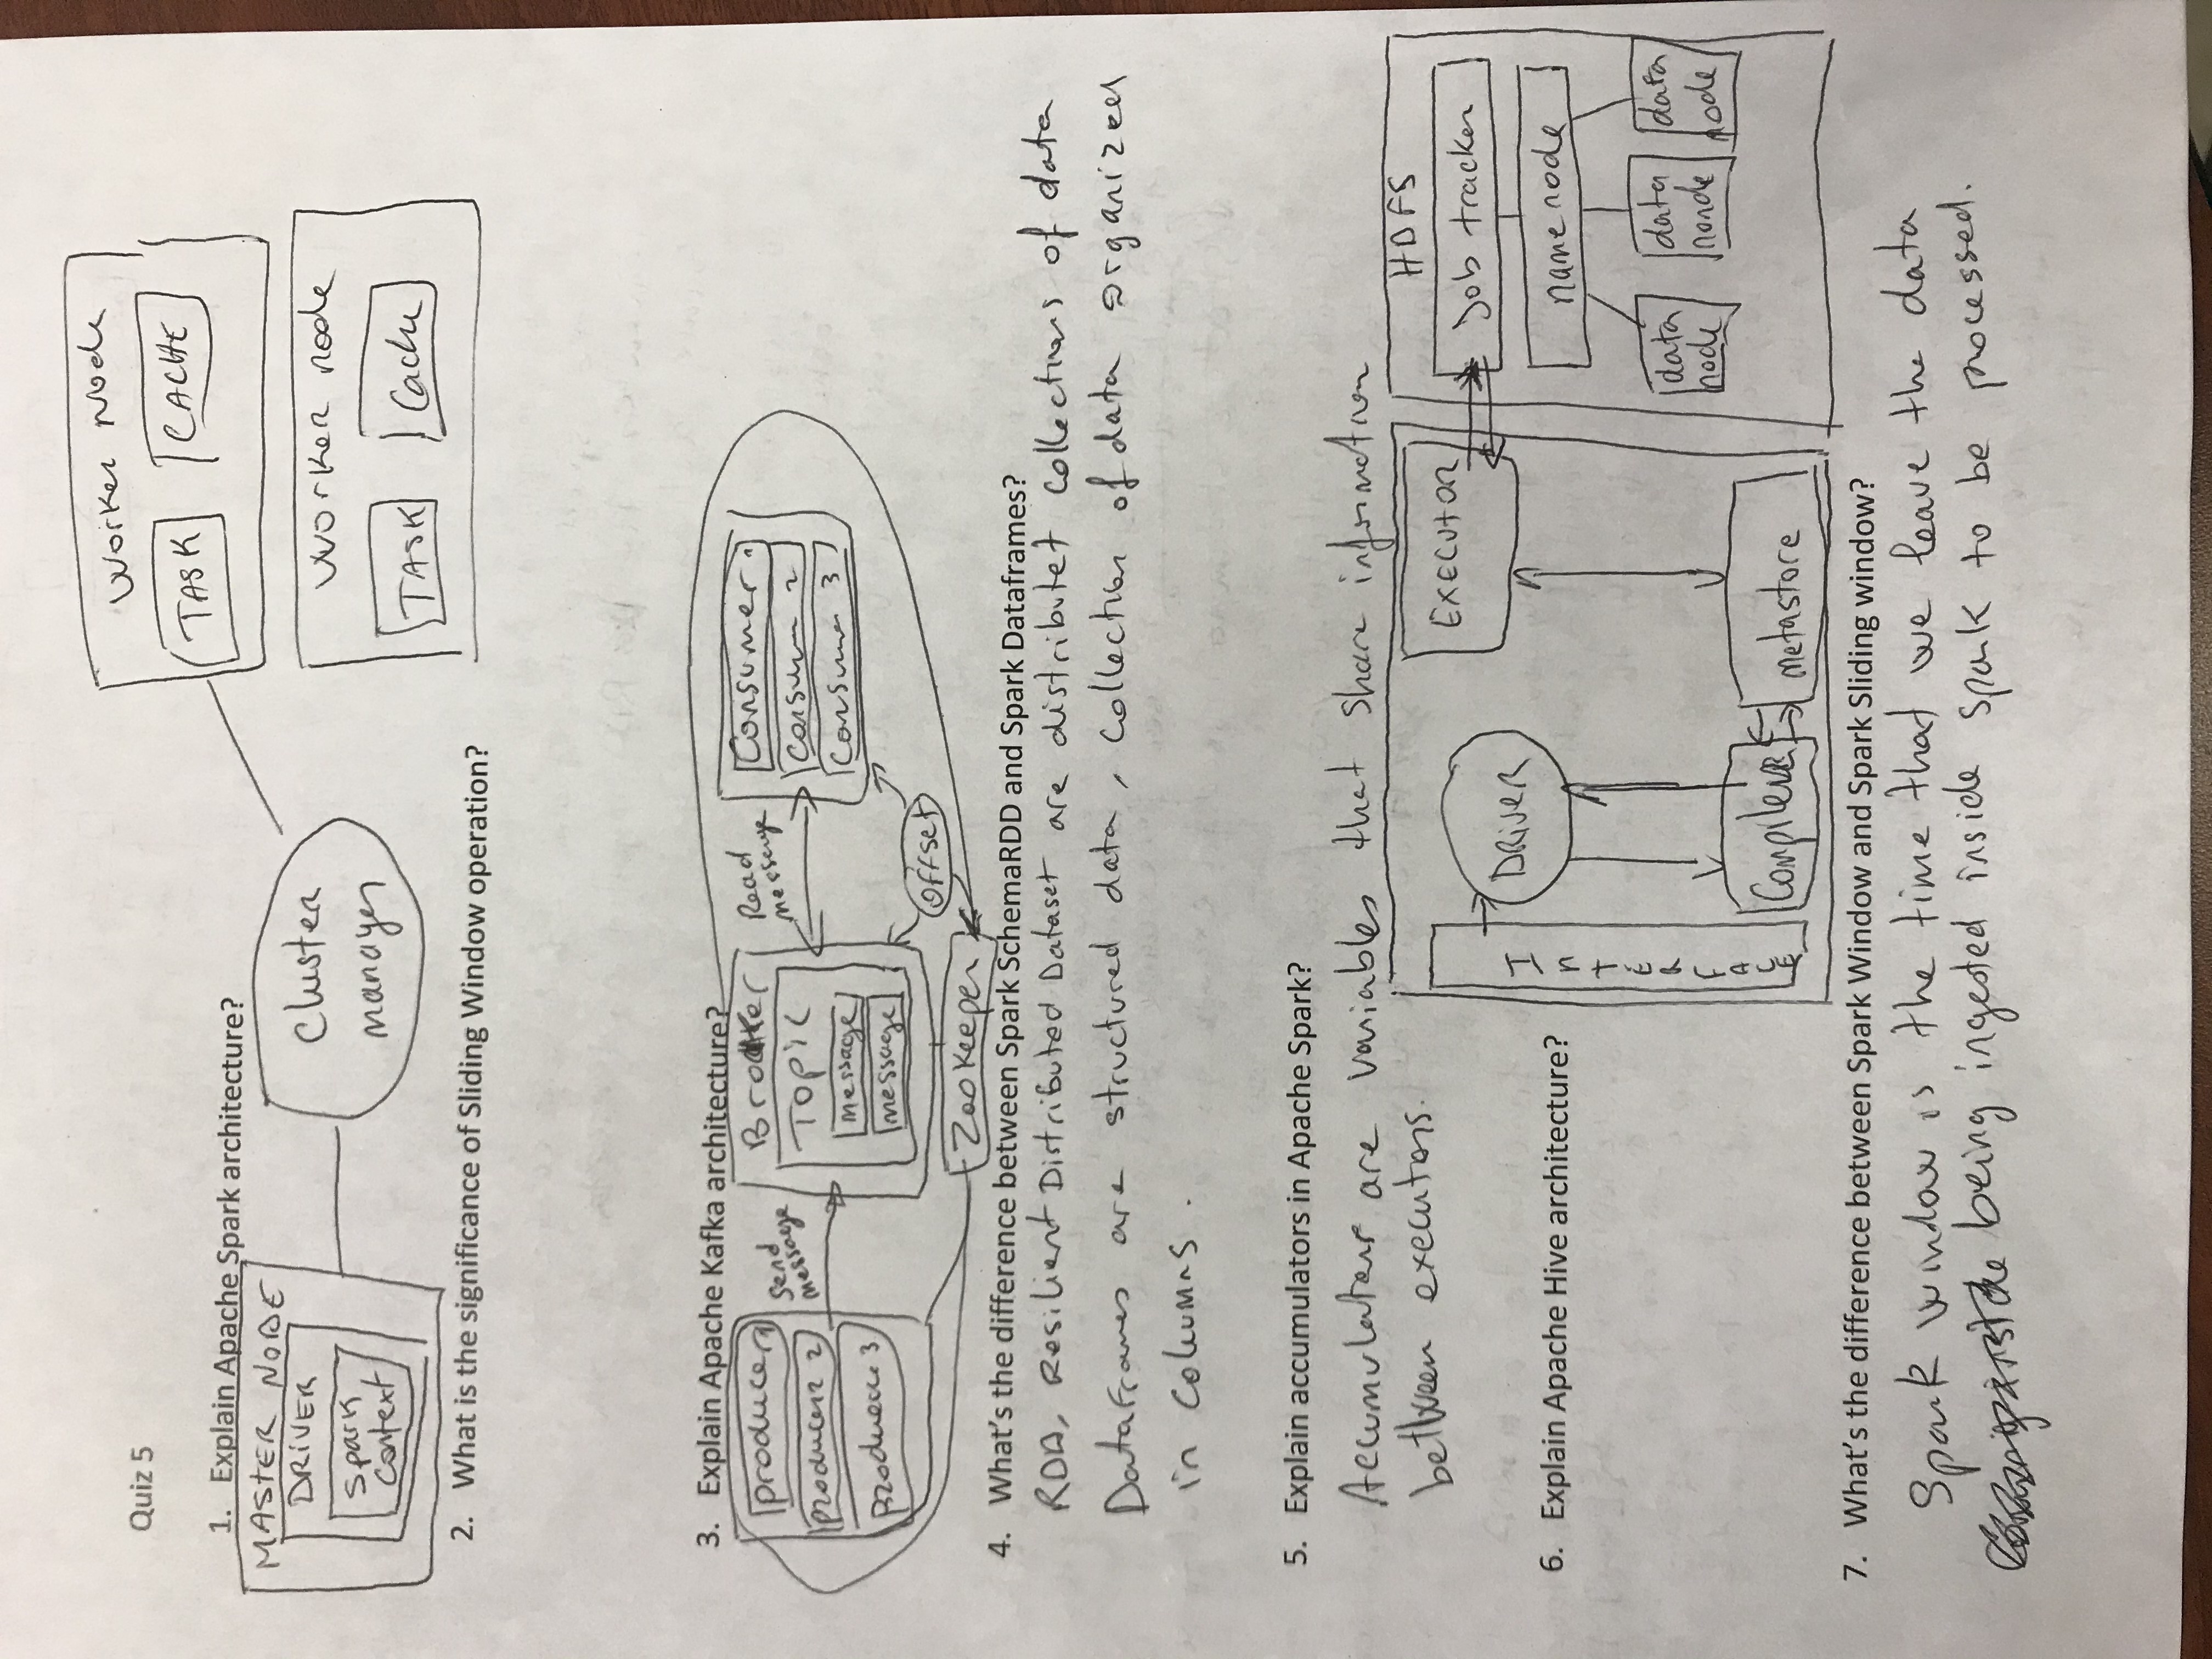 Quiz 5
1. Explain Apache Spark architecture?
MASTER NODE
DRIVER
Spark
Context
Cluster
manager
Worker Node
TASK
CACHE
Worker node
TASK
Cache
2. What is the significance of Sliding Window operation?
3. Explain Apache Kafka architecture?
producer 1
producer 2
producer 3
Send
message
Broker
Topic
message
message
Read
message
Consumer 1
Consumer 2
Consumer 3
offset
Zookeeper
4. What's the difference between Spark SchemaRDD and Spark Dataframes?
RDD, Resilient Distributed Dataset are distributet collections of data
Dataframes are structured data, collection of data organized
in columns.
5. Explain accumulators in Apache Spark?
Accumulators are variables that share information
between executors.
6. Explain Apache Hive architecture?
INTERFACE
DRIVER
Compiler
EXECUTOR
metastore
HDFS
Job tracker
name node
data
node
data
nonde
data
node
7. What's the difference between Spark Window and Spark Sliding window?
Spark window is the time that we leave the data
being ingested inside Spark to be processed.